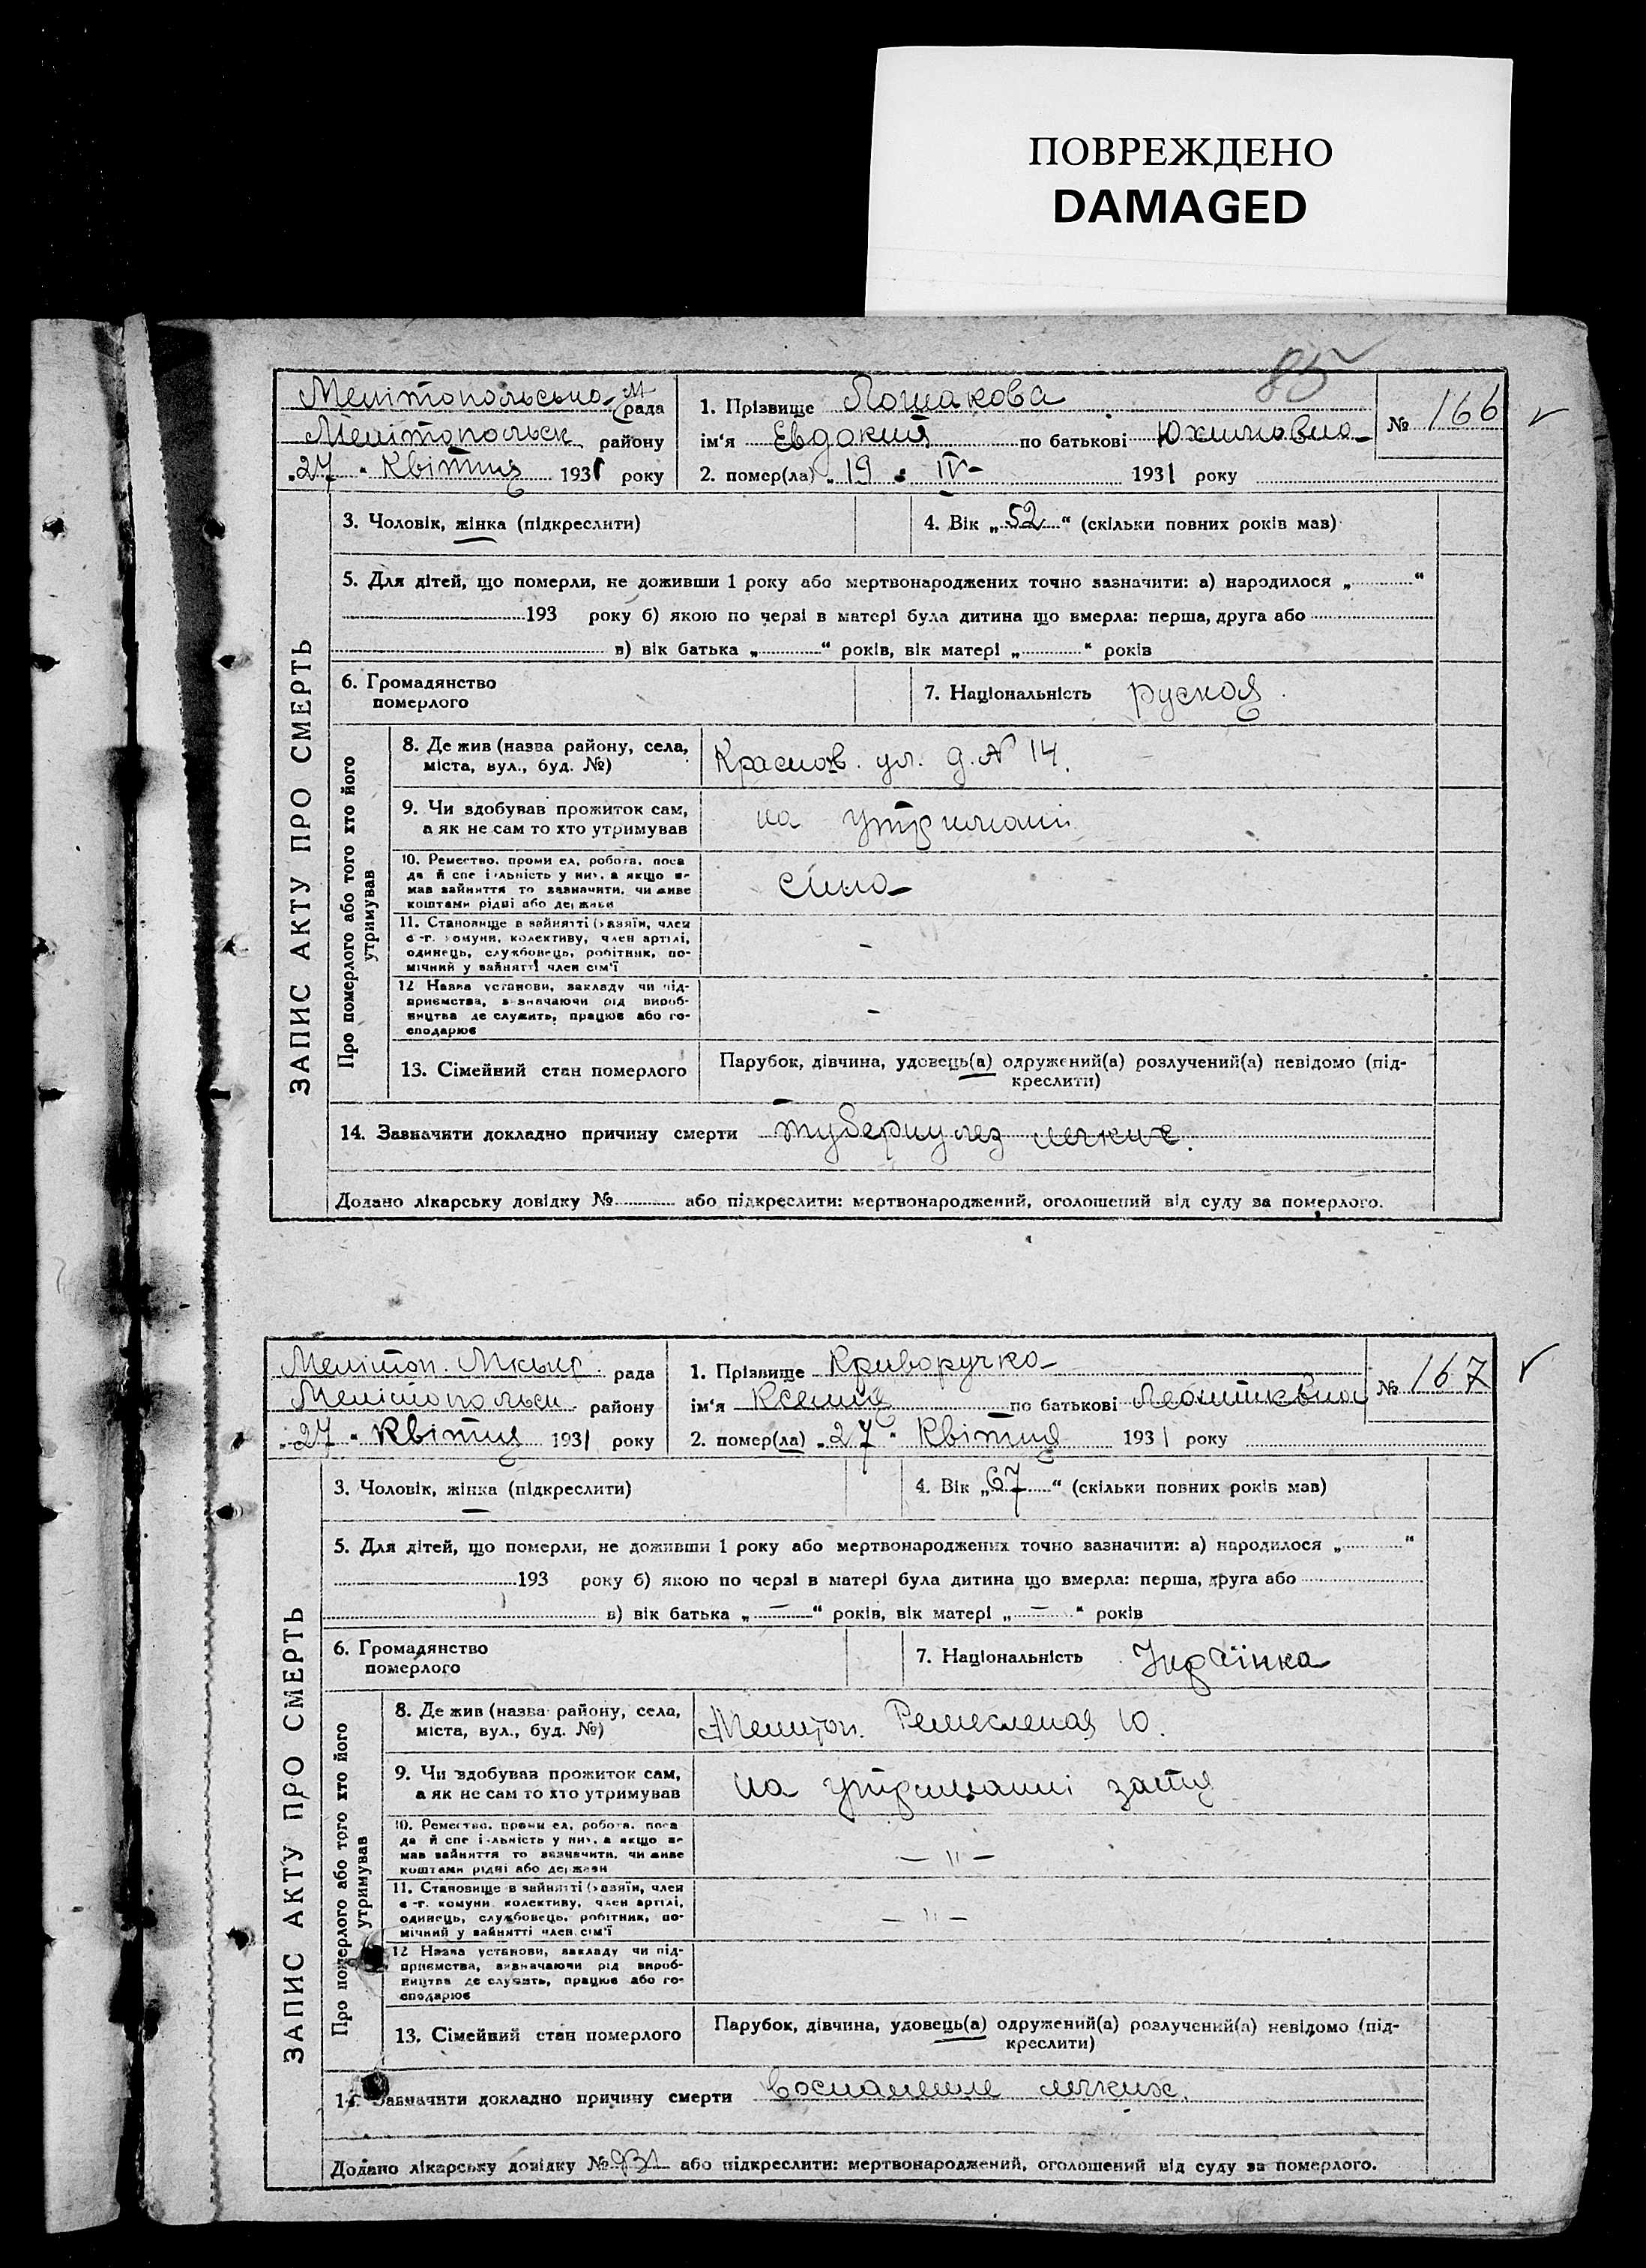 ПОВРЕЖДЕНО
DAMAGED
85
Мелітопольсько М рада
Мелітопольськ району
„27„ Квітня 1931 року
1. Прізвище Лошакова
ім'я Евдокия по батькові Юхимовна
2. помер(ла) „19 „ IV- 1931 року
№ 166
ЗАПИС АКТУ ПРО СМЕРТЬ
3. Чоловік, жінка (підкреслити)
4. Вік „52“ (скільки повних років мав)
5. Для дітей, що померли, не доживши 1 року або мертвонароджених точно зазначити: а) народилося „ “
193 року б) якою по черзі в матері була дитина що вмерла: перша, друга або
в) вік батька „ “ років, вік матері „ “ років
6. Громадянство
померлого
7. Національність руская
Про померлого або того хто його
утримував
8. Де жив (назва району, села,
міста, вул., буд. №)
Краснов. ул. д. N 14.
9. Чи здобував прожиток сам,
а як не сам то хто утримував
на утриманні
10. Ремество, проми ел, робота, поса
да й спе і альність у них, а якщо не
мав зайняття то зазначити, чи живе
коштами рідні або держави
сина
11. Становище в зайнятті (хазяїн, член
с-г. комуни, колективу, член артілі,
одинець, службовець, робітник, по-
мічний у зайнятті член сім'ї
-
12 Назва установи, закладу чи під-
приємства, визначаючи рід вироб-
ництва де служить, працює або го-
сподарює
-
13. Сімейний стан померлого
Парубок, дівчина, удовець(а) одружений(а) розлучений(а) невідомо (під-
креслити)
14. Зазначити докладно причину смерти туберкулез легких.
Додано лікарську довідку № або підкреслити: мертвонароджений, оголошений від суду за померлого.
Мелітоп. рада
Мелітопольськ району
„27„ Квітня 1931 року
1. Прізвище Криворучко
ім'я Ксения по батькові
2. помер(ла) „27„ Квітня 1931 року
№ 167
ЗАПИС АКТУ ПРО СМЕРТЬ
3. Чоловік, жінка (підкреслити)
4. Вік „67“ (скільки повних років мав)
5. Для дітей, що померли, не доживши 1 року або мертвонароджених точно зазначити: а) народилося „ “
193 року б) якою по черзі в матері була дитина що вмерла: перша, друга або
в) вік батька „ — “ років, вік матері „ — “ років
6. Громадянство
померлого
7. Національність Українка
Про померлого або того хто його
утримував
8. Де жив (назва району, села,
міста, вул., буд. №)
Мелітоп. Ремесленая 10.
9. Чи здобував прожиток сам,
а як не сам то хто утримував
на утриманні зятя
10. Ремество, проми ел, робота, поса
да й спе і альність у них, а якщо не
мав зайняття то зазначити, чи живе
коштами рідні або держави
— " —
11. Становище в зайнятті (хазяїн, член
с-г. комуни, колективу, член артілі,
одинець, службовець, робітник, по-
мічний у зайнятті член сім'ї
— " —
12 Назва установи, закладу чи під-
приємства, визначаючи рід вироб-
ництва де служить, працює або го-
сподарює
13. Сімейний стан померлого
Парубок, дівчина, удовець(а) одружений(а) розлучений(а) невідомо (під-
креслити)
14. Зазначити докладно причину смерти Воспаление легких.
Додано лікарську довідку № або підкреслити: мертвонароджений, оголошений від суду за померлого.